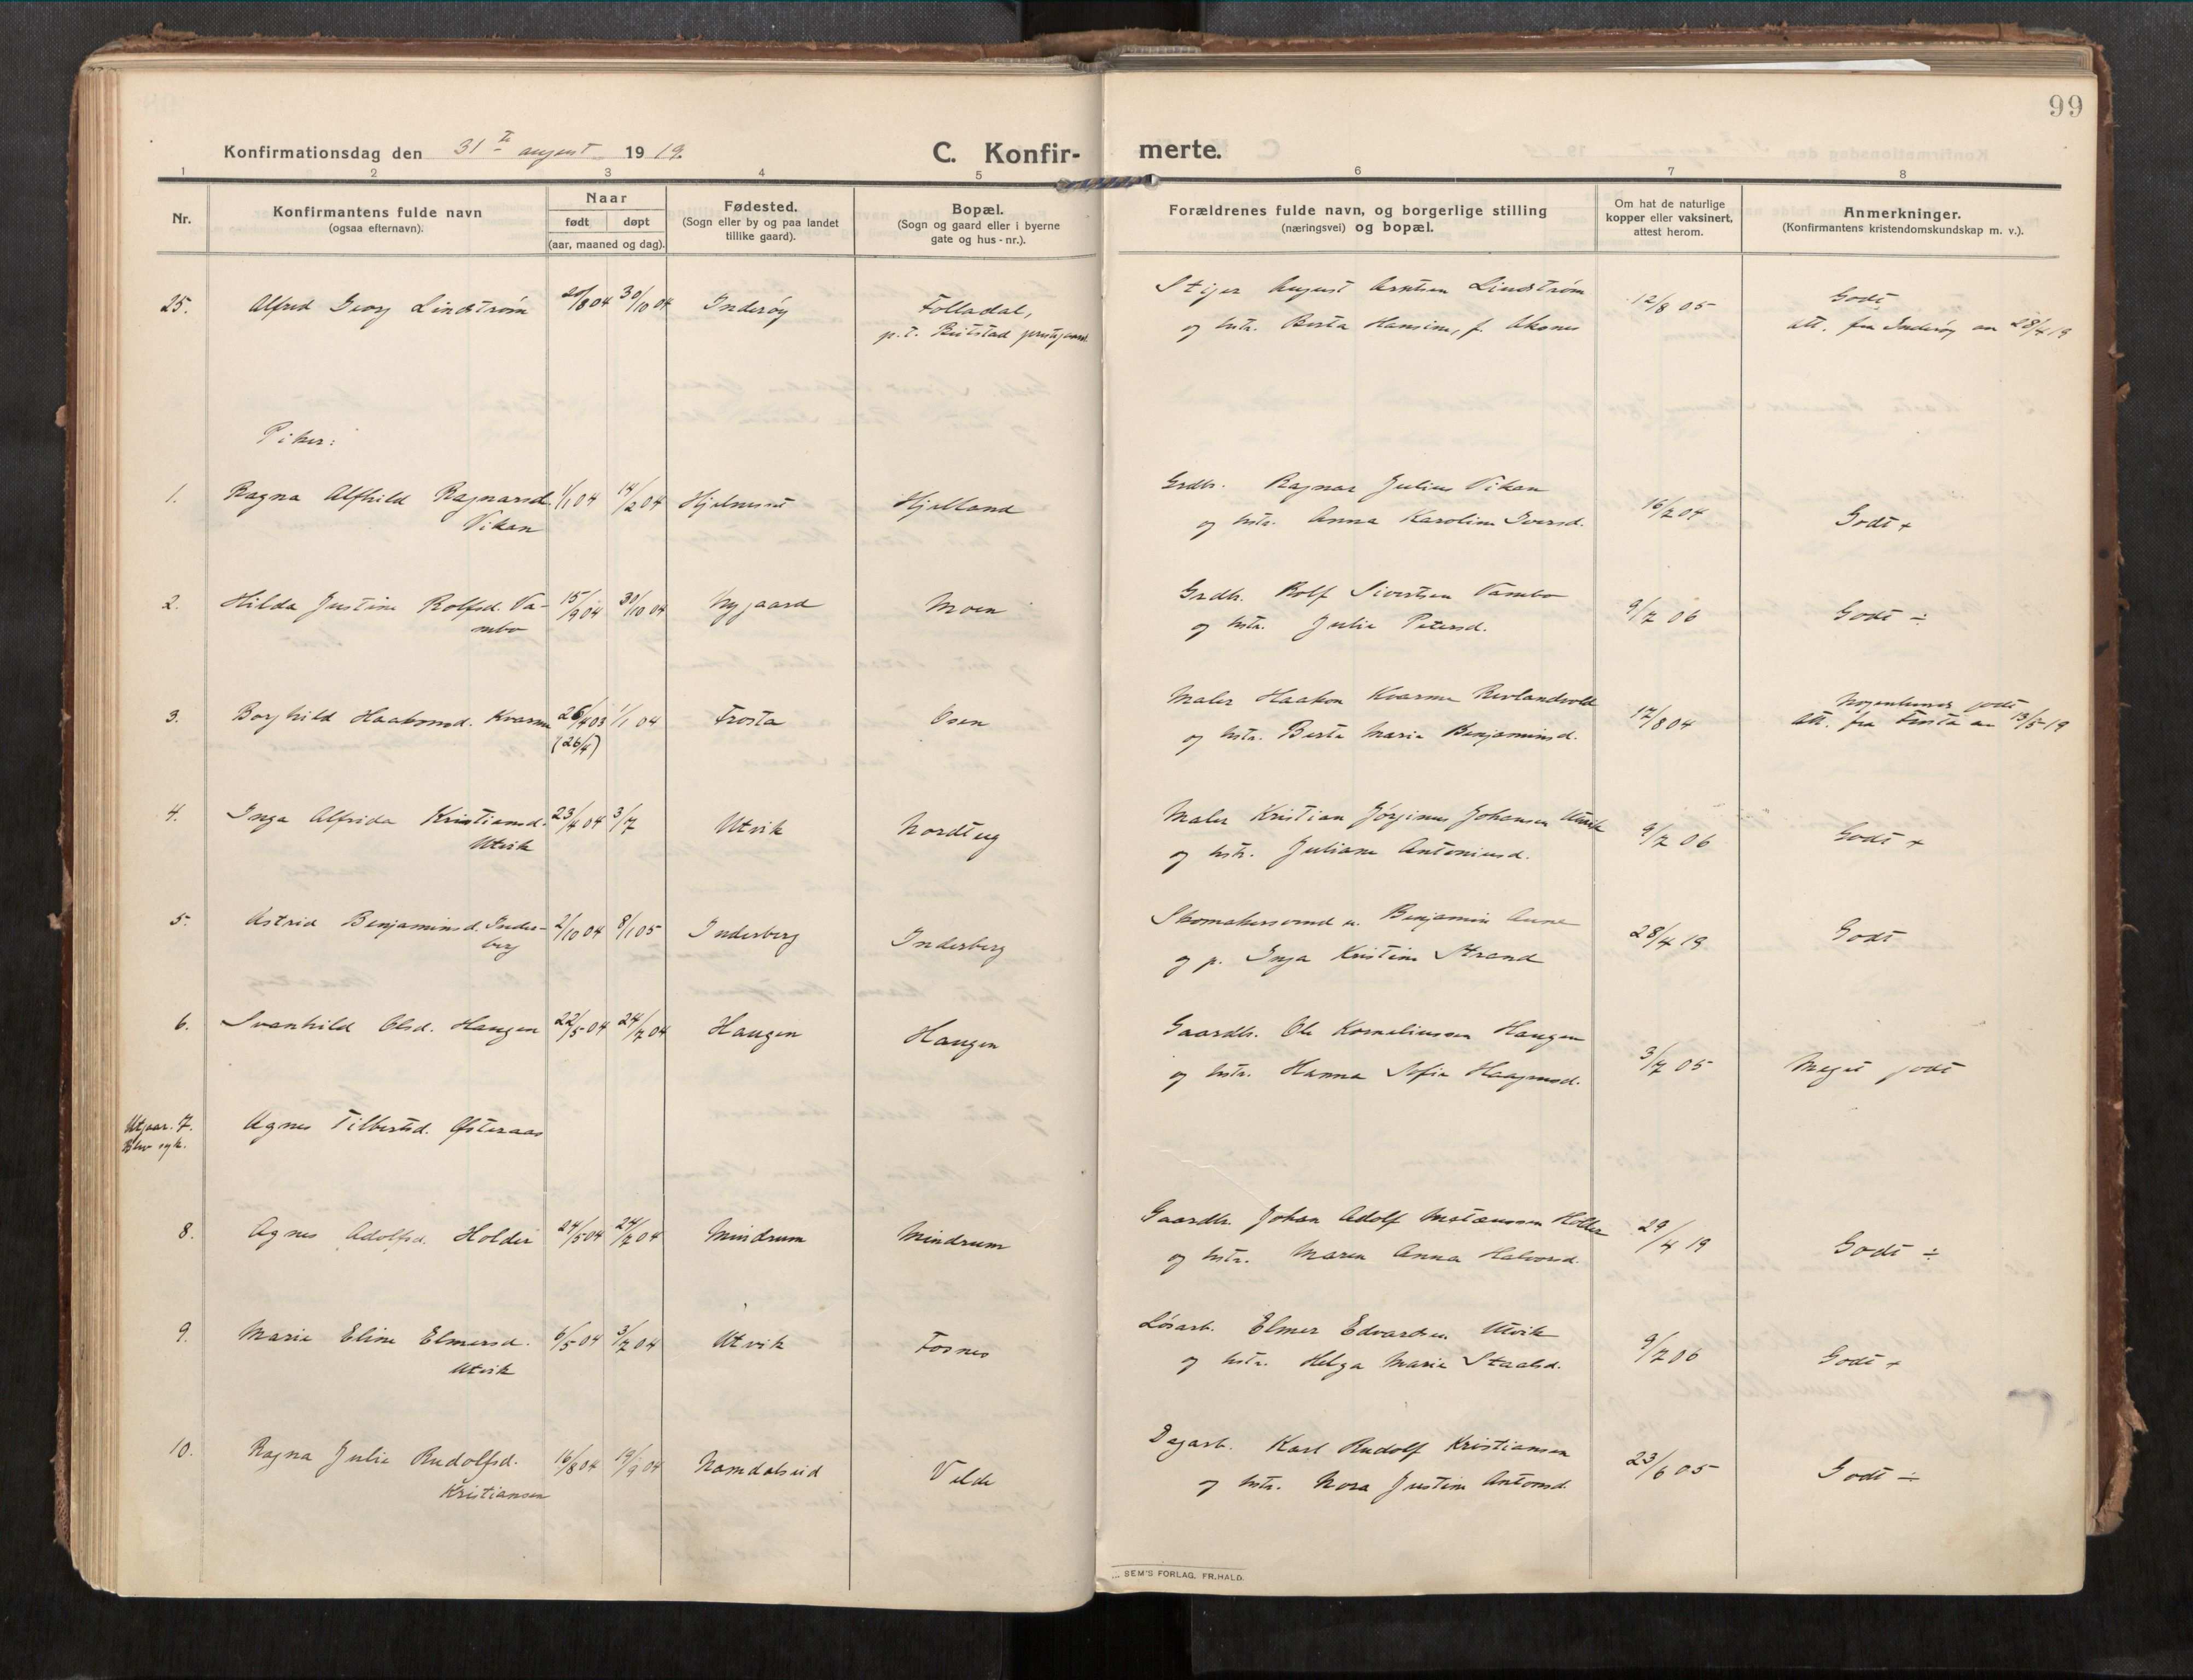 99
Konfirmationsdag den 31te august 1919.
C. Konfir-
merte.
1 2 3 4 5 6 7 8
Nr.
Konfirmantens fulde navn
(ogsaa efternavn).
Naar
født døpt
(aar, maaned og dag).
Fødested.
(Sogn eller by og paa landet
tillike gaard).
Bopæl.
(Sogn og gaard eller i byerne
gate og hus-nr.).
Forældrenes fulde navn, og borgerlige stilling
(næringsvei) og bopæl.
Om hat de naturlige
kopper eller vaksinert,
attest herom.
Anmerkninger.
(Konfirmantens kristendomskundskap m. v.).
25. Alfred Georg Lindstrøm 20/8 04 30/10 04 Inderøy Folladal,
p.t. Beitstad prestgaard
Stiger August Arntsen Lindstrøm 12/8 05 Godt
og hstr. Berta Hansine, f. Aksnes att. fra Inderøy av 28/4 19
Piker:
1. Ragna Alfhild Ragnarsd. 1/1 04 14/2 04 Hjelmset Hjelland
Vikan
Grdbr. Ragnar Julius Vikan 16/7 04 Godt +
og hstr. Anna Karoline Iversd.
2. Hilda Justine Rolfsd. Va- 15/9 04 30/10 04 Nygaard Moen
mbo
Grdbr. Rolf Sivertsen Vambo 9/7 06 Godt ÷
og hstr. Julie Petersd.
3. Borghild Haakonsd. Kvarme 26/4 03 1/1 04 Frosta Osen
(26/4)
Maler Haakon Kvarme Revlandvold 17/8 04 Nogenlunde godt
og hstr. Berte Marie Benjaminsd. att. fra Frosta av 13/5 19
4. Inga Alfrida Kristiansd. 23/4 04 3/7 Utvik Nordtug
Utvik
Maler Kristian Jørginus Johansen Utvik 9/7 06 Godt +
og hstr. Juliane Antoniusd.
5. Astrid Benjaminsd. Inder- 2/10 04 8/1 05 Inderberg Inderberg
berg
Skomakersvend u. Benjamin Aune 28/4 19 Godt
og p. Inga Kristine Strand
6. Svanhild Olsd. Haugen 22/5 04 24/7 04 Haugen Haugen
Gaardbr. Ole Korneliussen Haugen 3/7 05 Meget godt
og hstr. Hanna Sofie Haagensd.
Utgaar. 7. Agnes Tilbertsd. Østeraas
Blev syk.
8. Agnes Adolfsd. Holder 24/5 04 24/7 04 Mindrum Mindrum
Gaardbr. Johan Adolf Mostænssen Holder 29/4 19 Godt ÷
og hstr. Maren Anna Halvorsd.
9. Marie Eline Elmersd. 6/5 04 3/7 04 Utvik Fosnes
Utvik
Løsarb. Elmer Edvardsen Utvik 9/7 06 Godt +
og hstr. Helga Marie Staalsd.
10. Ragna Julie Rudolfsd. 16/8 04 19/9 04 Namdalseid Velde
Kristiansen
Dagarb. Karl Rudolf Kristiansen 23/6 05 Godt ÷
og hstr. Nora Justine Antonsd.
SEM'S FORLAG. FR. HALD.